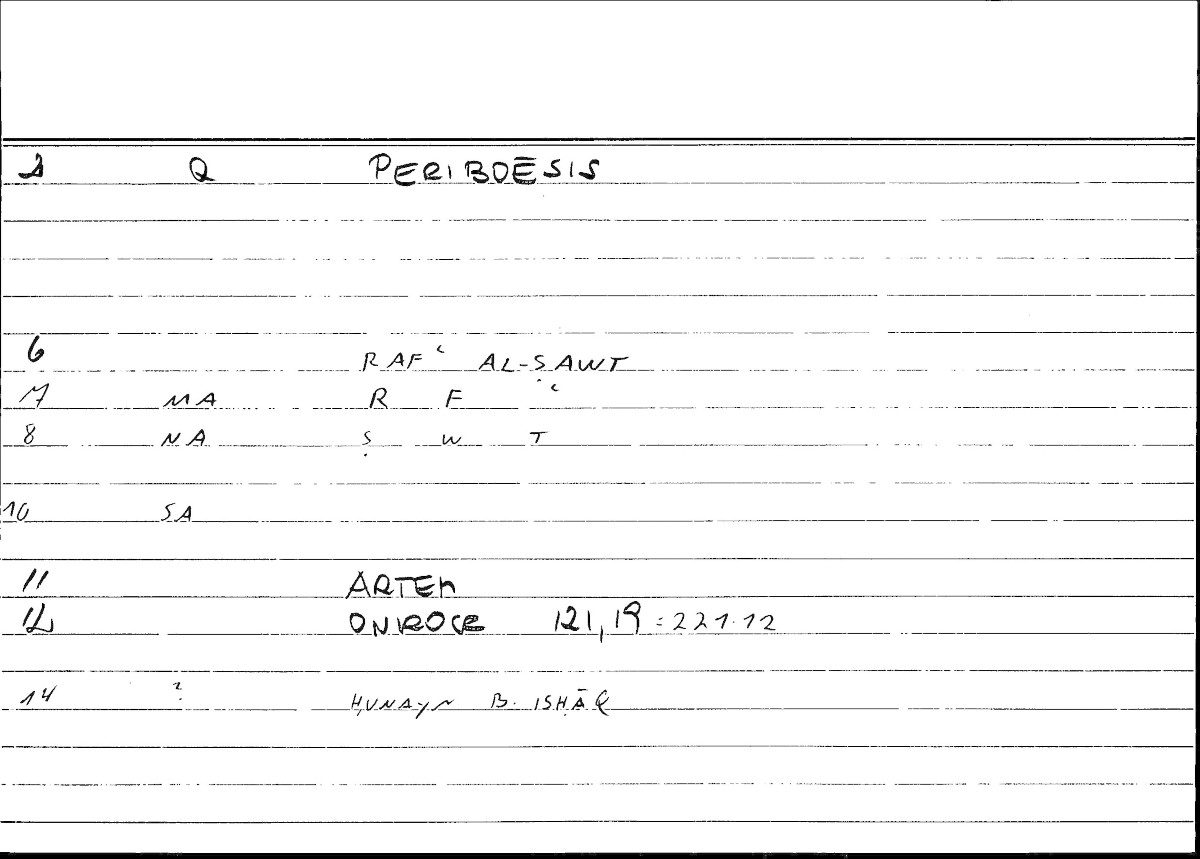 2 Q PERIBOĒSIS
6 RAFʿ AL-ṢAWT
7 MA R F ʿ
8 NA Ṣ W T
10 SA
11 ARTEM
12 ONIROCR 121,19 = 221.12
14 ? ḤUNAYN B. ISḤĀQ